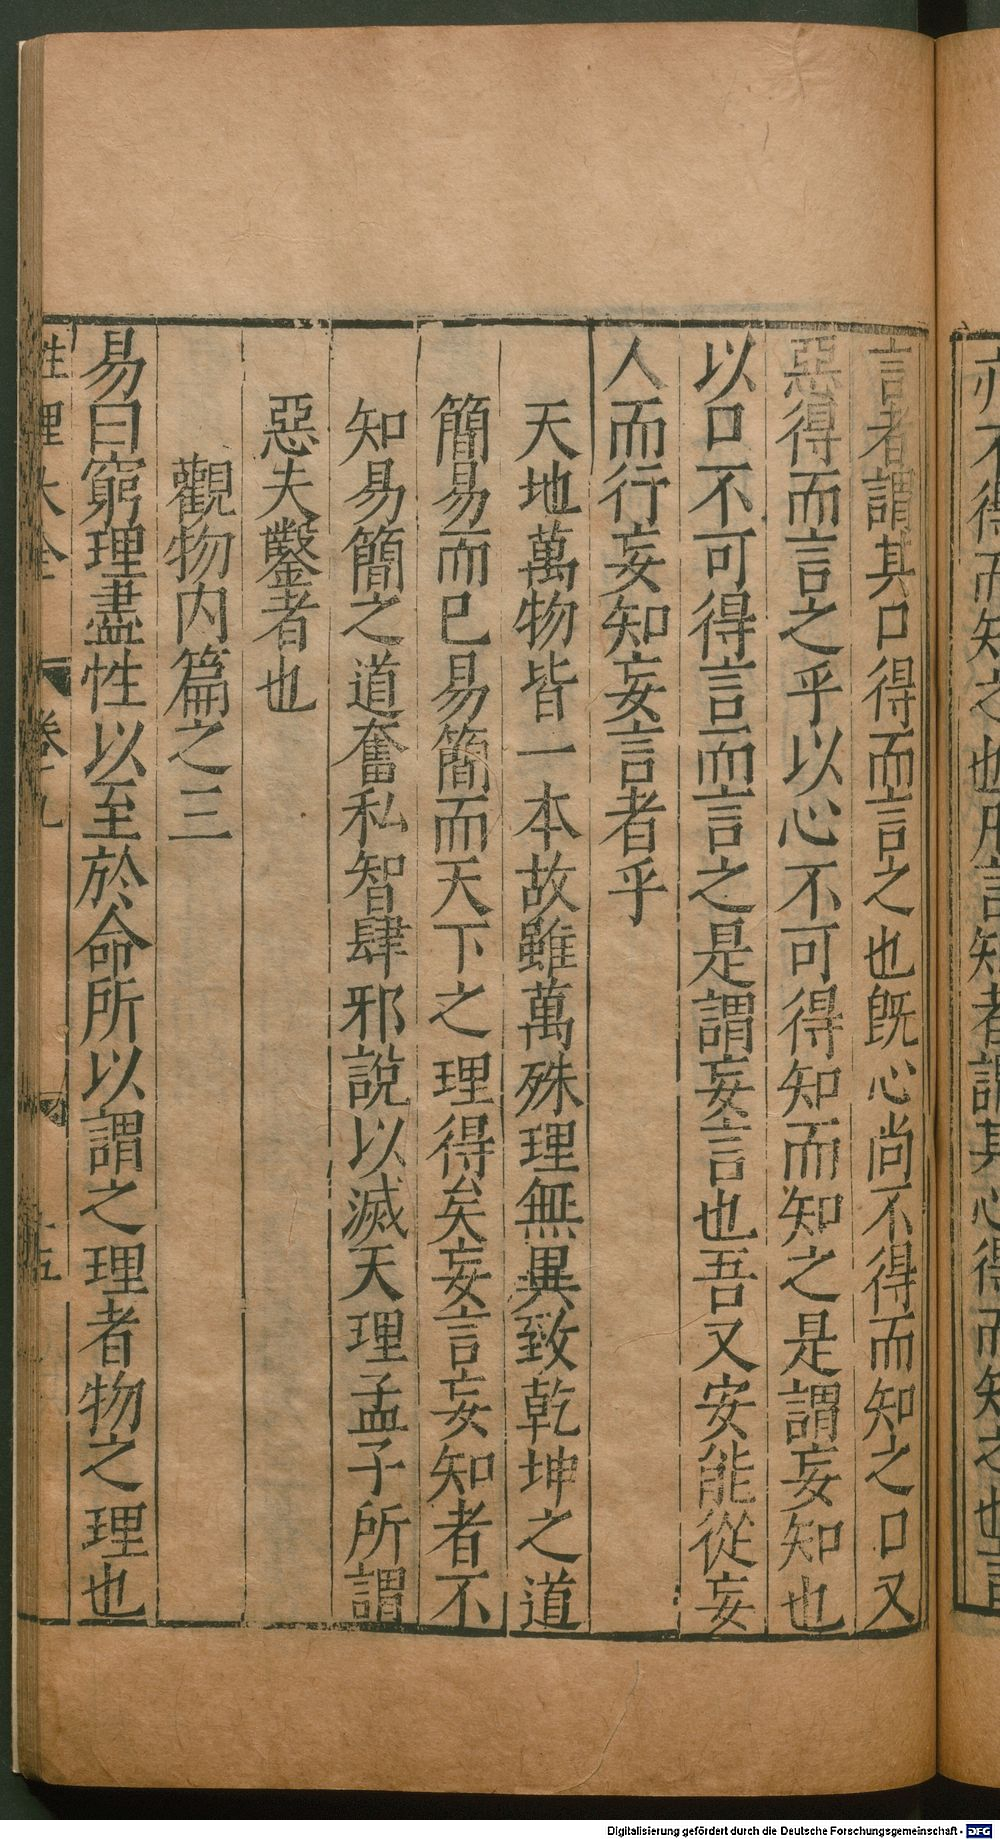 亦不得而知之也所言知者謂其心得而知之也言
言者謂其口得而言之也旣心尚不得而知之口又
惡得而言之乎以心不可得知而知之是謂妄知也
以口不可得言而言之是謂妄言也吾又安能從妄
人而行妄知妄言者乎
天地萬物皆一本故雖萬殊理無異致乾坤之道
簡易而已易簡而天下之理得矣妄言妄知者不
知易簡之道奮私智肆邪說以滅天理孟子所謂
惡夫鑿者也
觀物内篇之三
易曰窮理盡性以至於命所以謂之理者物之理也
性理大全 卷之九 十五
Digitalisierung gefördert durch die Deutsche Forschungsgemeinschaft - DFG